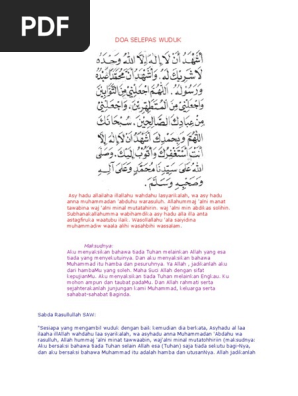 PDF
DOA SELEPAS WUDUK
أَشْهَدُ أَنْ لَا إِلٰهَ إِلَّا اللهُ وَحْدَهُ
لَا شَرِيكَ لَهُ وَأَشْهَدُ أَنَّ مُحَمَّدًا عَبْدُهُ
وَرَسُولُهُ. اَللّٰهُمَّ اجْعَلْنِي مِنَ التَّوَّابِينَ
وَاجْعَلْنِي مِنَ الْمُتَطَهِّرِينَ، وَاجْعَلْنِي
مِنْ عِبَادِكَ الصَّالِحِينَ. سُبْحَانَكَ
اللّٰهُمَّ وَبِحَمْدِكَ أَشْهَدُ أَنْ لَا إِلٰهَ إِلَّا
أَنْتَ أَسْتَغْفِرُكَ وَأَتُوبُ إِلَيْكَ. وَصَلَّى
اللهُ عَلَى سَيِّدِنَا مُحَمَّدٍ وَعَلَى آلِهِ
وَصَحْبِهِ وَسَلَّمَ.
Asy hadu allailaha illallahu wahdahu lasyarikalah, wa asy hadu
anna muhammadan 'abduhu warasuluh. Allahummaj 'alni minat
tawabina waj 'alni minal mutatahhirin. waj 'alni min ibdikas solihin.
Subhanakallahumma wabihamdika asy hadu alla illa anta
astagfiruka waatubu ilaii. Wasollallahu 'ala saiyidina
muhammadiw waala alihi wasahbihi wassalam.
Maksudnya:
Aku menyaksikan bahawa tiada Tuhan melainkan Allah yang esa
tiada yang menyekutuinya. Dan aku menyaksikan bahawa
Muhammad itu hamba dan pesuruhnya. Ya Allah , jadikanlah aku
dan hambaMu yang soleh. Maha Suci Allah dengan sifat
kepujianMu. Aku menyaksikan tiada Tuhan melainkan Engkau. Ku
mohon ampun dan taubat padaMu. Dan Allah rahmati serta
sejahterakanlah junjungan kami Muhammad, keluarga serta
sahabat-sahabat Baginda.
Sabda Rasullullah SAW:
"Sesiapa yang mengambil wuduk dengan baik kemudian dia berkata, Asyhadu al laa
ilaaha illAllah wahdahu laa syarikalah, wa asyhadu anna Muhammadan 'Abdahu wa
rasulluh, Allah hummaj 'alni minat tawwaabin, waj'alni minal mutatohhiriin (maksudnya:
Aku bersaksi bahawa tiada Tuhan selain Allah Esa (Tuhan) saja tiada sekutu bagi-Nya,
dan aku bersaksi bahawa Muhammad itu adalah hamba dan utusanNya. Allah jadikanlah